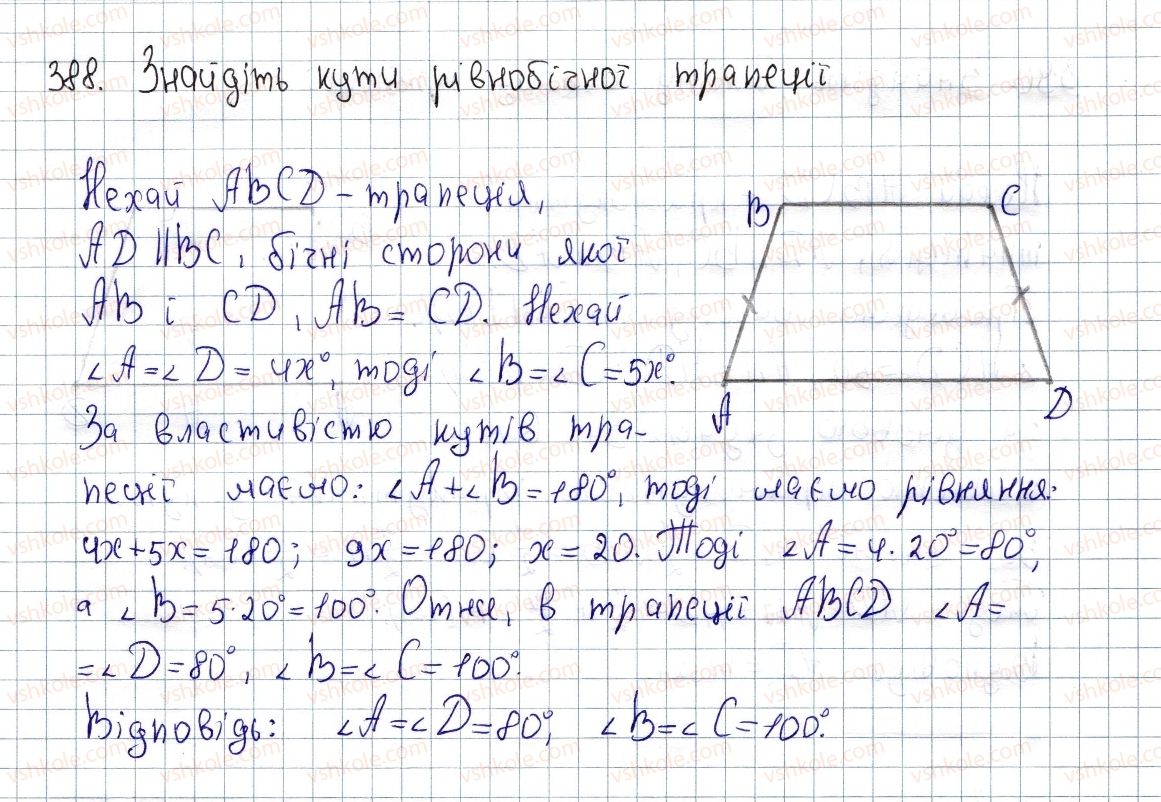 388. Знайдіть кути рівнобічної трапеції
Нехай ABCD – трапеція,
AD || BC, бічні сторони якої
AB і CD, AB = CD. Нехай
∠A = ∠D = 4x°, тоді ∠B = ∠C = 5x°.
За властивістю кутів тра-
пеції маємо: ∠A + ∠B = 180°, тоді маємо рівняння:
4x + 5x = 180; 9x = 180; x = 20. Тоді ∠A = 4 · 20° = 80°,
а ∠B = 5 · 20° = 100°. Отже, в трапеції ABCD ∠A =
= ∠D = 80°, ∠B = ∠C = 100°.
Відповідь: ∠A = ∠D = 80°, ∠B = ∠C = 100°.
B
C
A
D
vshkole.com